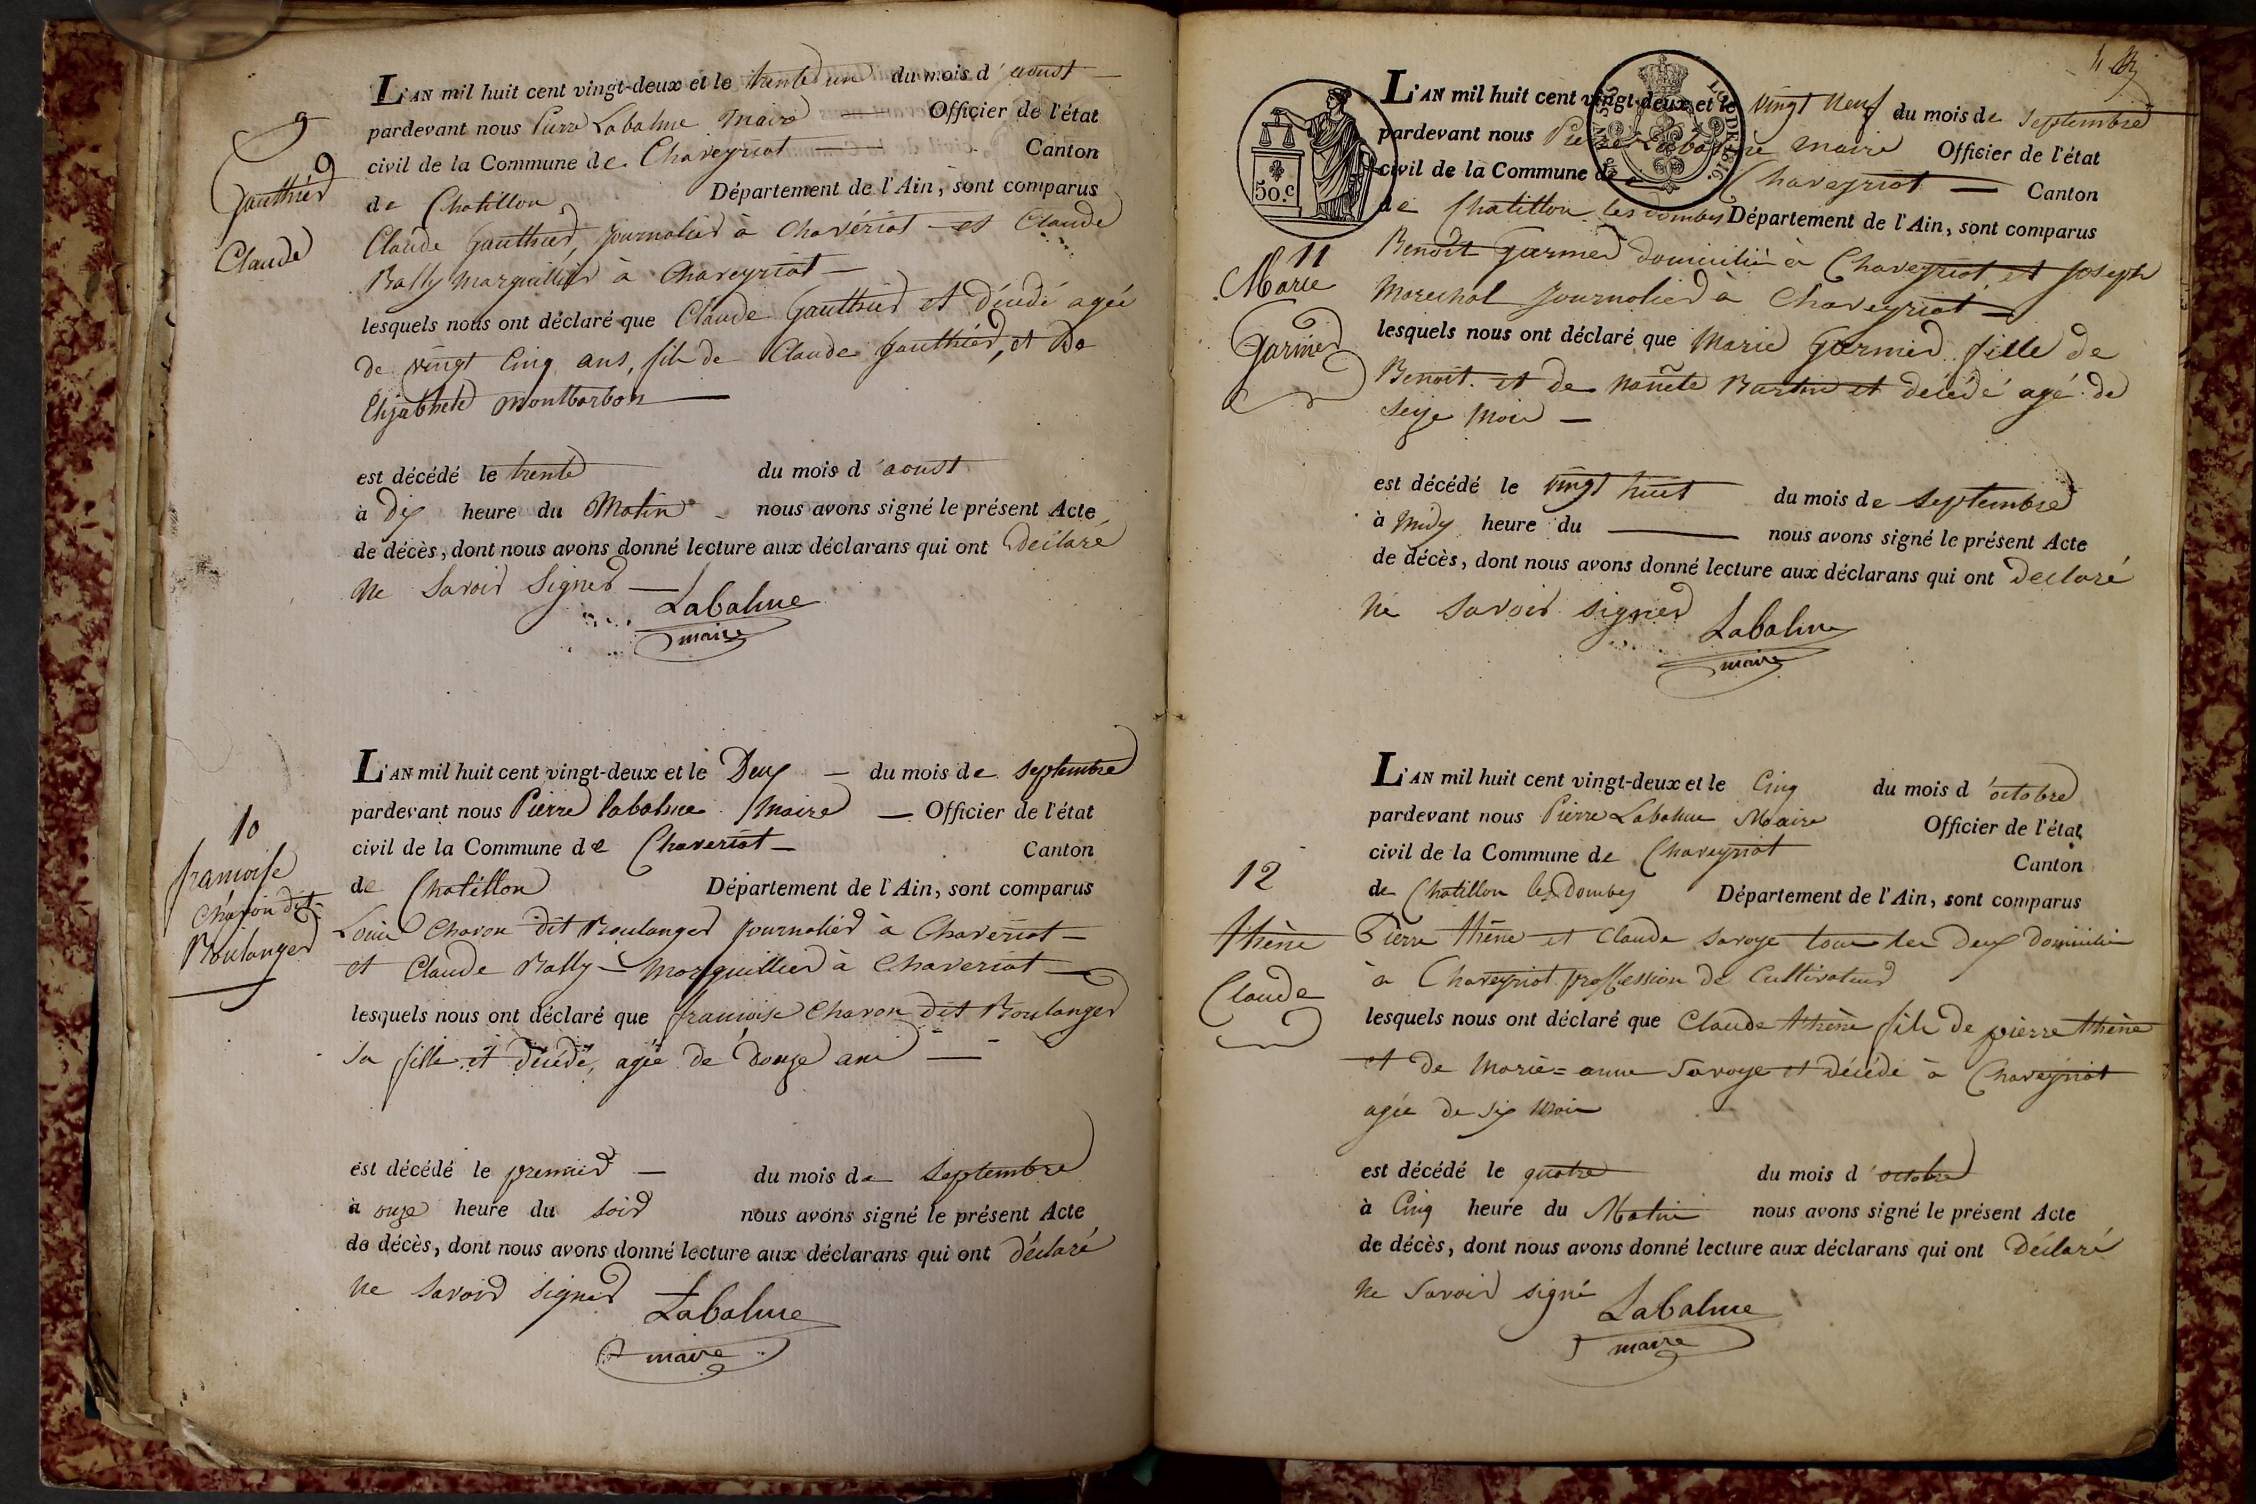 9
Gauthier
Claude
L'AN mil huit cent vingt-deux et le trente un du mois d'aoust
pardevant nous Pierre Labalme Maire Officier de l'état
civil de la Commune de Chaveyriat Canton
de Chatillon Département de l'Ain, sont comparus
Claude Gauthier, journalier à Chavériat et Claude
Bally Marguillier à Chaveyriat
lesquels nous ont déclaré que Claude Gauthier et décédé agée
de vingt Cinq ans, fils de Claude Gauthier, et De
Elizabhete Montbarbon
est décédé le trente du mois d'aoust
à Dix heure du Matin nous avons signé le présent Acte
de décès, dont nous avons donné lecture aux déclarans qui ont Déclaré
ne Savoir Signer
Labalme
maire
10
francoise
Chavon dit
Boulanger
L'AN mil huit cent vingt-deux et le Deux du mois de septembre
pardevant nous Pierre labalme Maire Officier de l'état
civil de la Commune de Chaveriat Canton
de Chatillon Département de l'Ain, sont comparus
Louis Chavon dit Boulanger journalier à Chaveriat
et Claude Bally Marguillier à Chaveriat
lesquels nous ont déclaré que francoise Chavon dit Boulanger
sa fille et décédé, agée de douze ans
est décédé le premier du mois de septembre
à onze heure du soir nous avons signé le présent Acte
de décès, dont nous avons donné lecture aux déclarans qui ont déclaré
ne savoir signer
Labalme
maire
50.C
LOI DE 1816
11
Marie
Garmier
L'AN mil huit cent vingt-deux et le vingt neuf du mois de septembre
pardevant nous Pierre Labalme maire Officier de l'état
civil de la Commune de Chaveyriat Canton
de Chatillon les dombes Département de l'Ain, sont comparus
Benoît Garmier domicilié à Chaveyriat et Joseph
Marechal Journalier à Chaveyriat
lesquels nous ont déclaré que Marie Garmier fille de
Benoit et de Nañete Bastin et décédé agé de
seize mois
est décédé le vingt huit du mois de septembre
à Midy heure du nous avons signé le présent Acte
de décès, dont nous avons donné lecture aux déclarans qui ont declaré
ne savoir signer
Labalme
maire
12
Athène
Claude
L'AN mil huit cent vingt-deux et le Cinq du mois d'octobre
pardevant nous Pierre Labalme Maire Officier de l'état
civil de la Commune de Chaveyriat Canton
de Chatillon les Dombes Département de l'Ain, sont comparus
Pierre Athène et Claude Savoye tous les Deux Domicilié
à Chaveyriat proffession de Cultivateur
lesquels nous ont déclaré que Claude Athène fils de pierre Athène
et de Marie=anne Savoye et décédé à Chaveyriat
agée de six Mois
est décédé le quatre du mois d'octobre
à Cinq heure du Matin nous avons signé le présent Acte
de décès, dont nous avons donné lecture aux déclarans qui ont Déclaré
ne Savoir signé
Labalme
maire